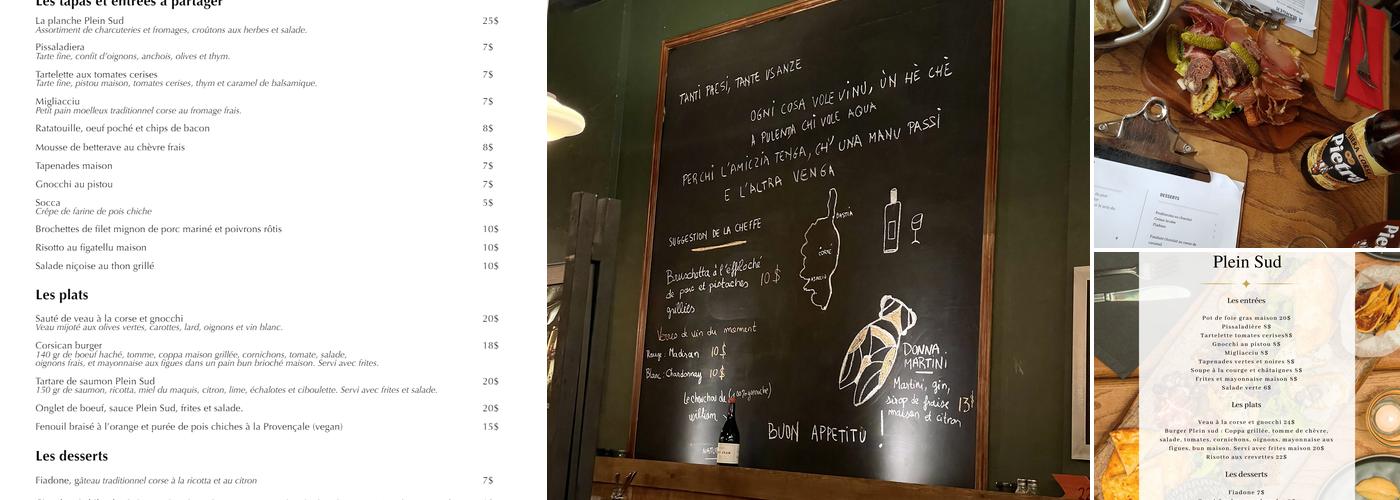 Les tapas et entrées à partager
La planche Plein Sud 25$
Assortiment de charcuteries et fromages, croûtons aux herbes et salade.
Pissaladiera 7$
Tarte fine, confit d'oignons, anchois, olives et thym.
Tartelette aux tomates cerises 7$
Tarte fine, pistou maison, tomates cerises, thym et caramel de balsamique.
Migliacciu 7$
Petit pain moelleux traditionnel corse au fromage frais.
Ratatouille, oeuf poché et chips de bacon 8$
Mousse de betterave au chèvre frais 8$
Tapenades maison 7$
Gnocchi au pistou 7$
Socca 5$
Crêpe de farine de pois chiche
Brochettes de filet mignon de porc mariné et poivrons rôtis 10$
Risotto au figatellu maison 10$
Salade niçoise au thon grillé 10$
Les plats
Sauté de veau à la corse et gnocchi 20$
Veau mijoté aux olives vertes, carottes, lard, oignons et vin blanc.
Corsican burger 18$
140 gr de boeuf haché, tomme, coppa maison grillée, cornichons, tomate, salade,
oignons frais, et mayonnaise aux figues dans un pain bun brioché maison. Servi avec frites.
Tartare de saumon Plein Sud 20$
150 gr de saumon, ricotta, miel du maquis, citron, lime, échalotes et ciboulette. Servi avec frites et salade.
Onglet de boeuf, sauce Plein Sud, frites et salade. 20$
Fenouil braisé à l'orange et purée de pois chiches à la Provençale (vegan) 15$
Les desserts
Fiadone, gâteau traditionnel corse à la ricotta et au citron 7$
TANTI PAESI, TANTE USANZE
OGNI COSA VOLE VINU, ÙN HÈ CHÈ
A PULENDA CHI VOLE AQUA
PERCHI L'AMICZIA TENGA, CH' UNA MANU PASSI
E L'ALTRA VENGA
BASTIA
CORTE
AJACCIO
SUGGESTION DE LA CHEFFE
Bruschetta à l'effiloché
de porc et pistaches 10$
grillées
Verres de vin du moment
Rouge: Madiran 10$
Blanc: Chardonnay 10$
Le chouchou de
william
DONNA
MARTINI
Martini, gin,
sirop de fraise 13$
maison et citron
BUON APPETITU !
Pietra
DESSERTS
Plein Sud
Les entrées
Pot de foie gras maison 20$
Pissaladière 8$
Tartelette tomates cerises8$
Gnocchi au pistou 8$
Migliacciu 8$
Tapenades vertes et noires 8$
Soupe à la courge et châtaignes 8$
Frites et mayonnaise maison 8$
Salade verte 6$
Les plats
Veau à la corse et gnocchi 24$
Burger Plein sud : Coppa grillée, tomme de chèvre,
salade, tomates, cornichons, oignons, mayonnaise aux
figues, bun maison. Servi avec frites maison 20$
Risotto aux crevettes 22$
Les desserts
Fiadone 7$